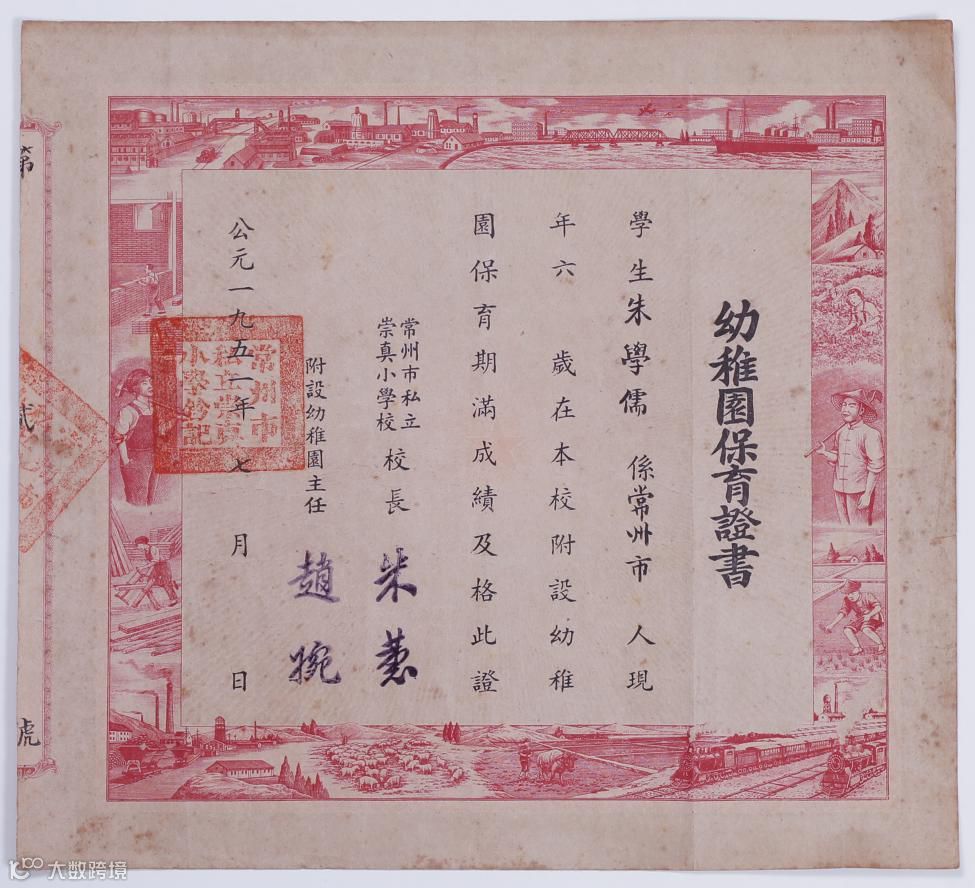 幼稚園保育證書
學生朱學儒 係常州市 人現
年六 歲在本校附設幼稚
園保育期滿成績及格此證
常州市私立
崇真小學校 校長 朱蕙
附設幼稚園主任 趙婉
公元一九五一年七月 日
常州市
私立崇真
小學鈐記
第
貳
號
大数跨境